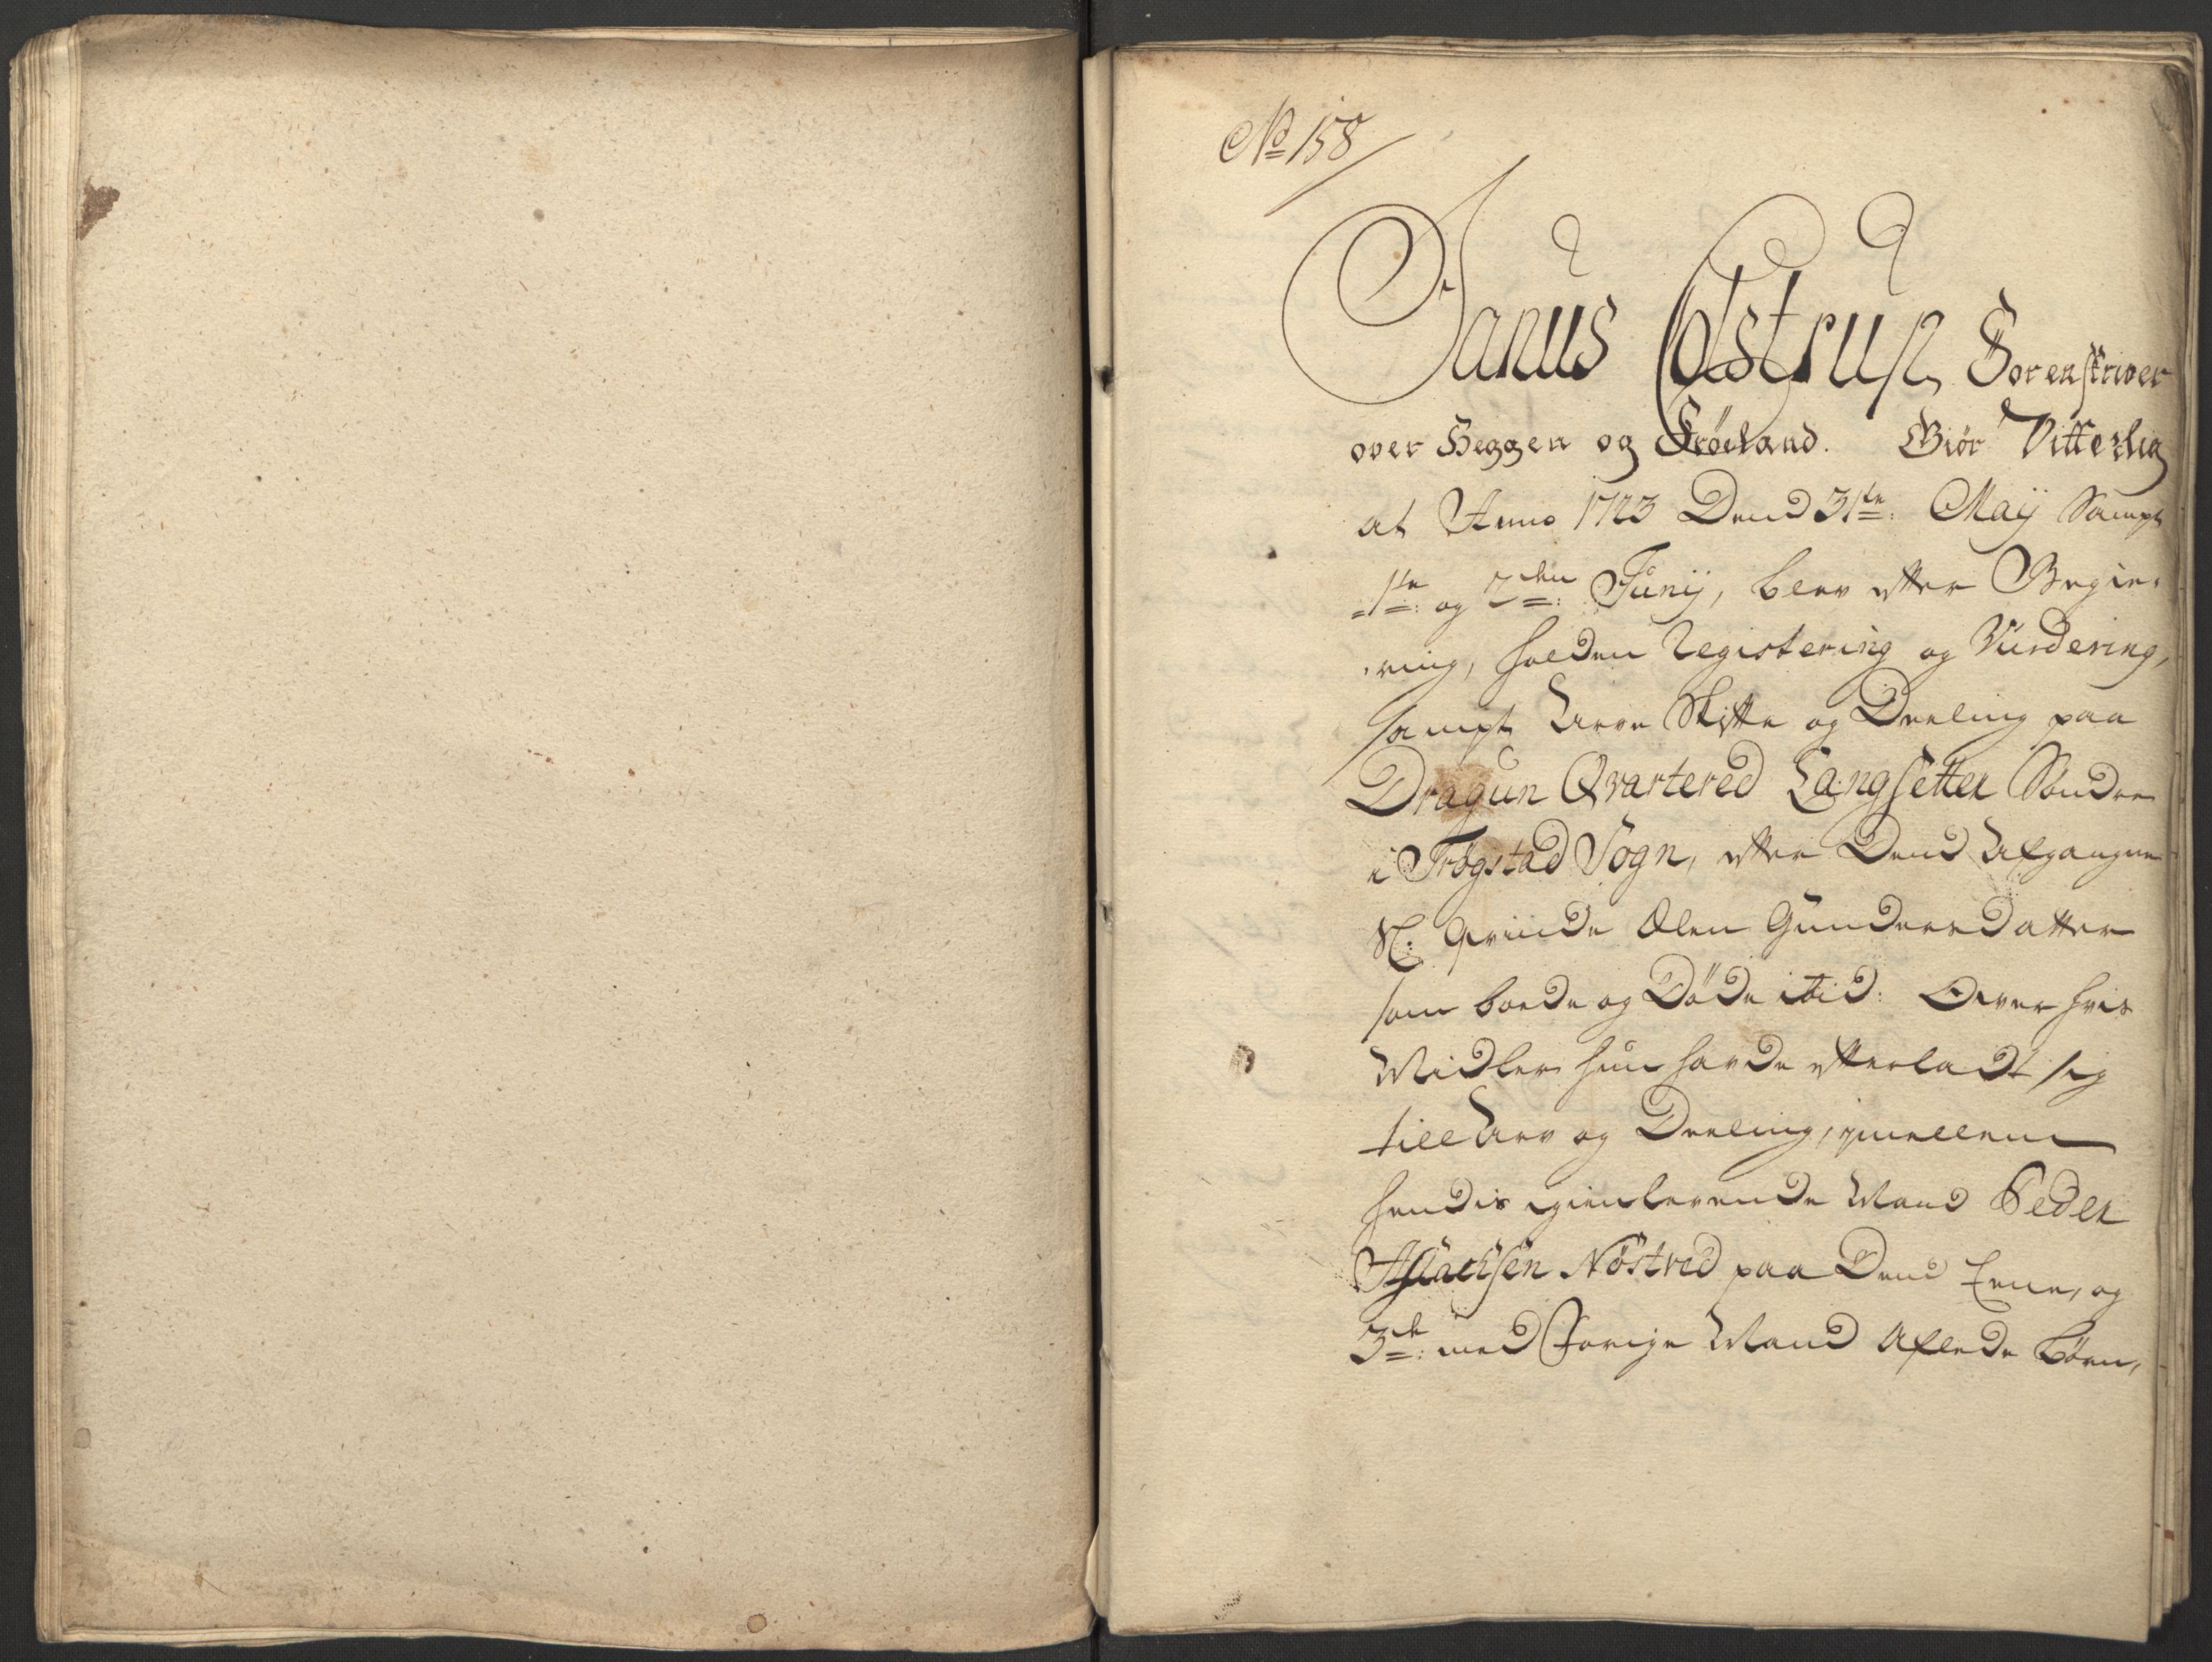 No 158
Janus Colstrup Sorenskriver
over Heggen og Frøeland. Giør Vitterlig
at Anno 1723 Dend 31te: Maij Sampt
1te: og 2den: Junij, blev efter Begie-
ring, holden Registering og Vurdering,
sampt Arve Skifte og Deeling paa
Dragun Qvartered Langsetter Søndre
i Trøgstad Sogn, efter Dend Afgangne
Sl: Qvinde Olen Gundersdatter
som boede og Døde itid: Over hvis
Midler hun hafde efterladt sig
till Arv og Deeling, imellem
hendis igienlevende Mand Peder
Isaachsen Nøstved paa Dend Eene, og
3de: med Forige Mand Aflede Børn,